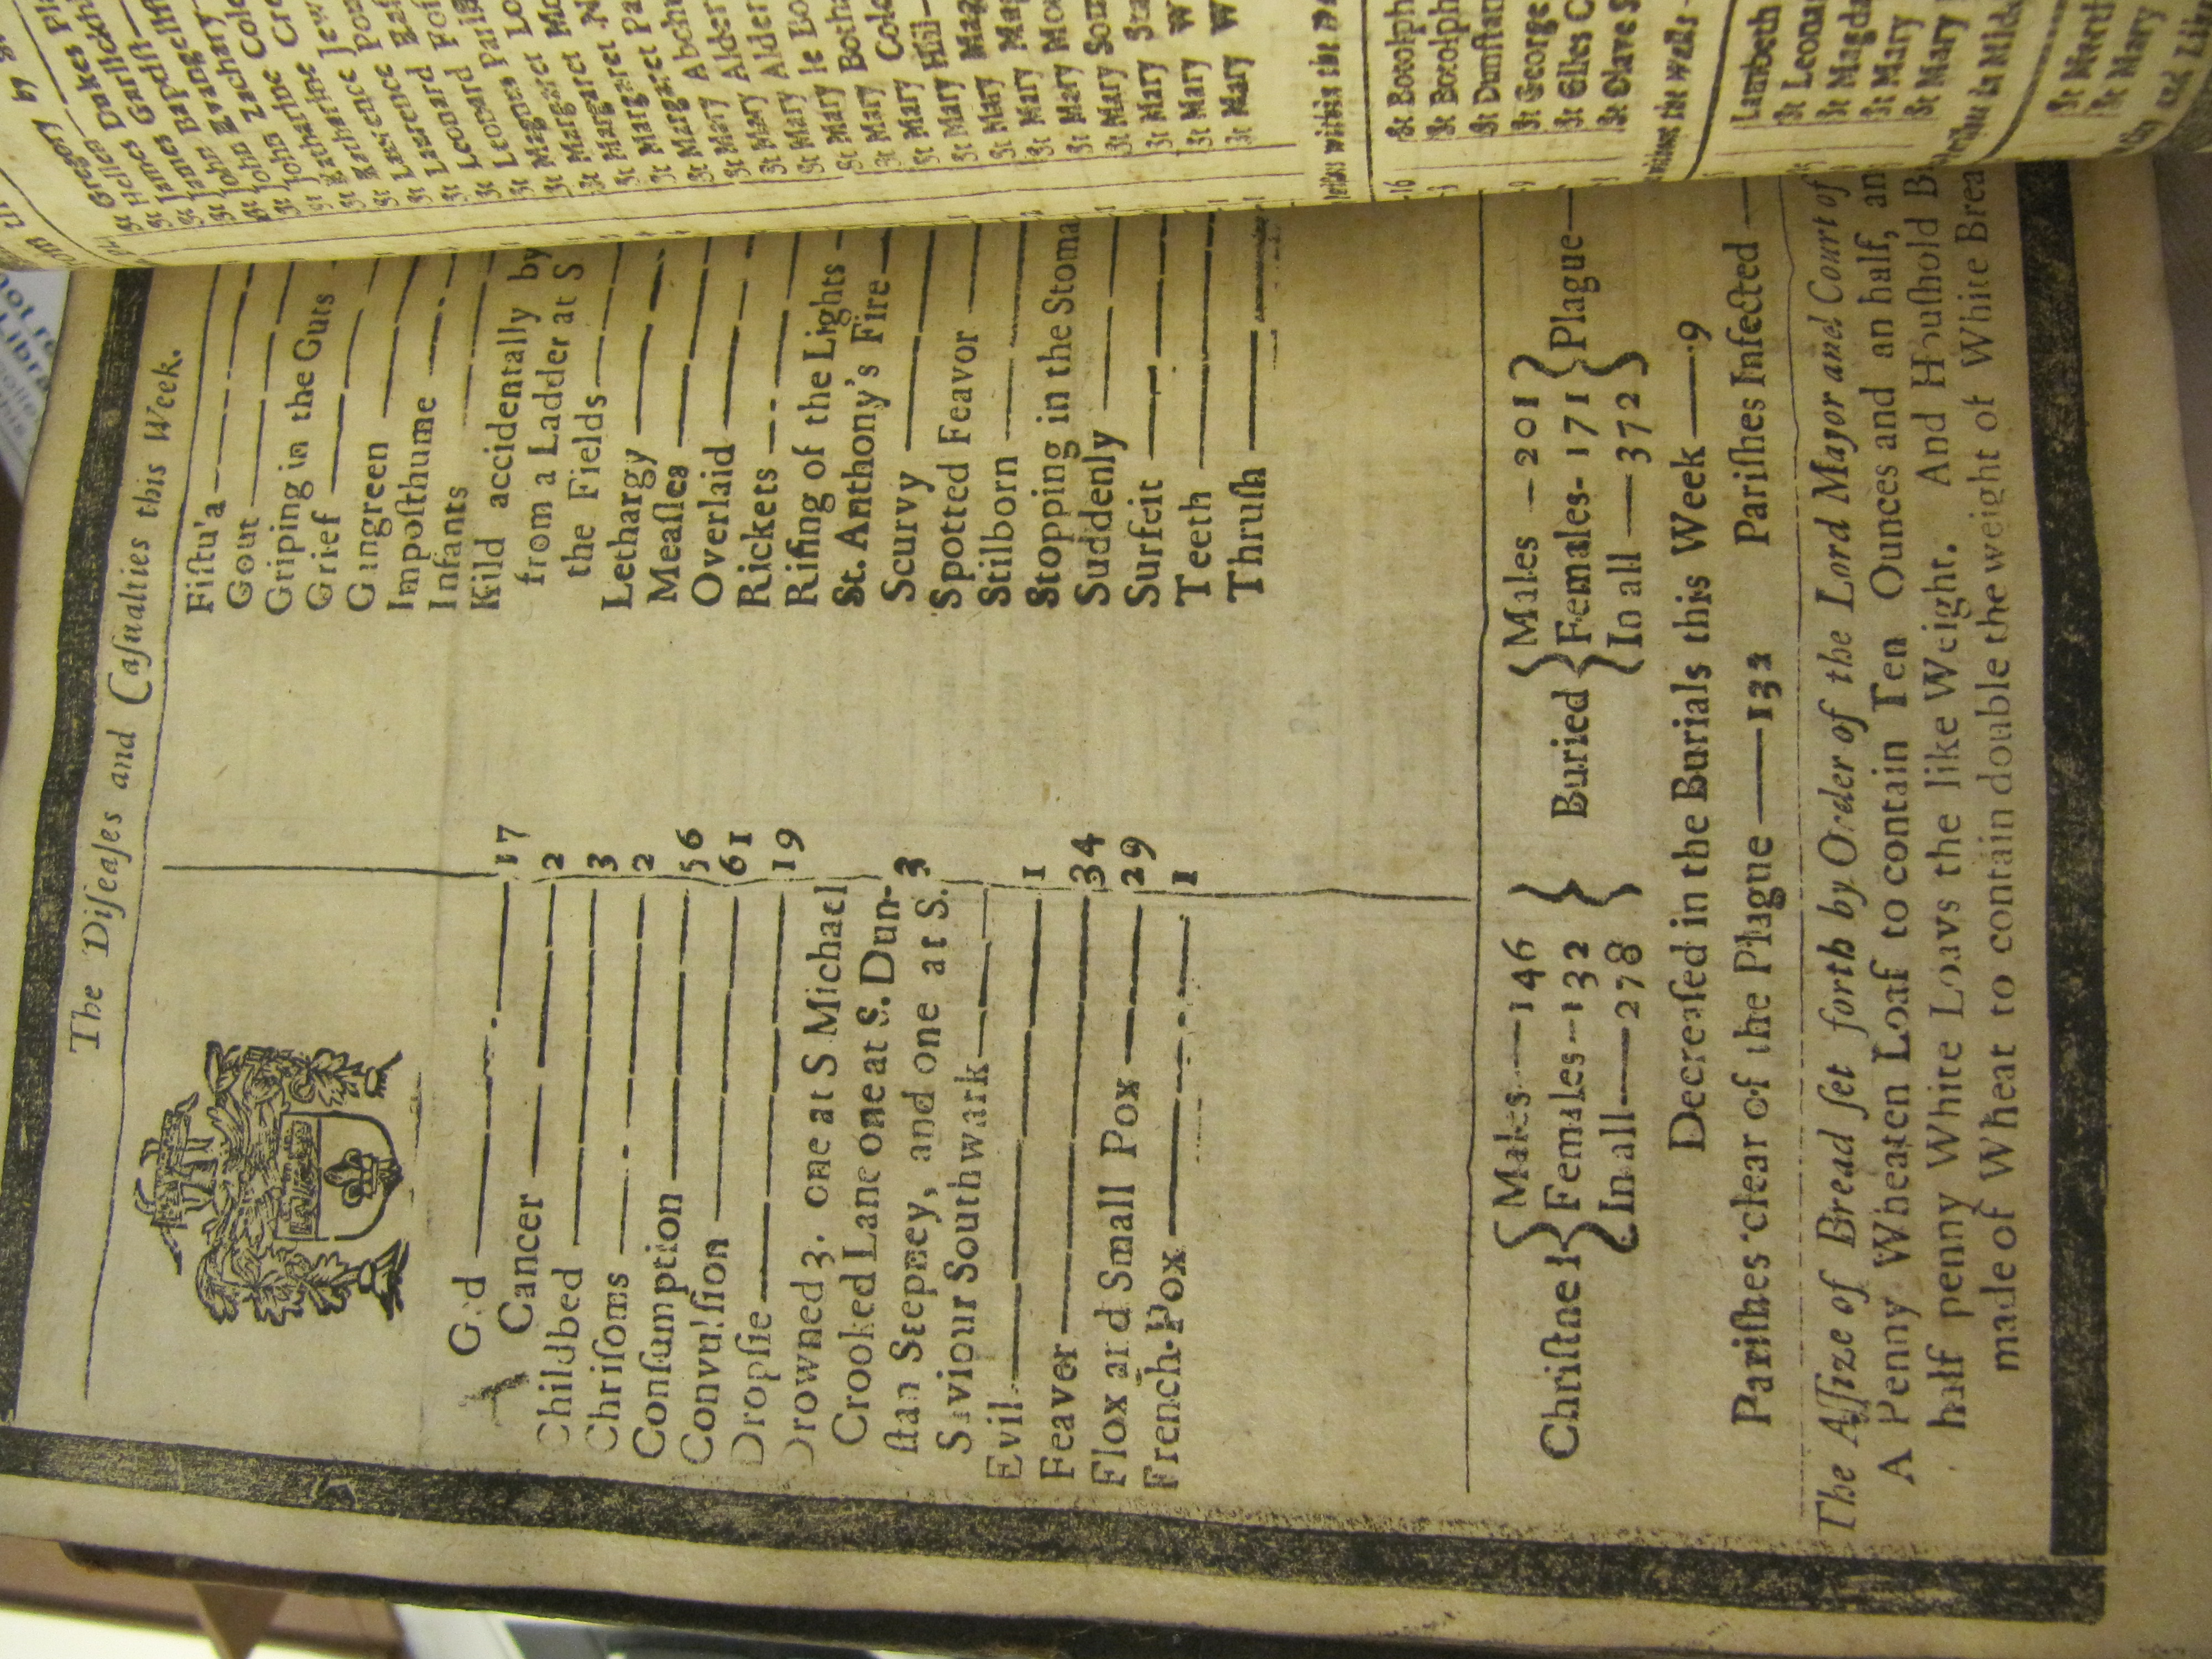 The Diſeaſes and Caſualties this Week.
Aged 17
Cancer 2
Childbed 3
Chriſoms 2
Conſumption 56
Convulſion 61
Dropſie 19
Drowned 3. one at S Michael
Crooked Lane one at S. Dun-
ſtan Stepney, and one at S. 3
Saviour Southwark
Evil 1
Feaver 34
Flox and Small Pox 29
French-Pox 1
Fiſtula
Gout
Griping in the Guts
Grief
Gangreen
Impoſthume
Infants
Kild accidentally by
from a Ladder at S
the Fields
Lethargy
Meaſles
Overlaid
Rickets
Riſing of the Lights
St. Anthony's Fire
Scurvy
Spotted Feavor
Stilborn
Stopping in the Stoma
Suddenly
Surfeit
Teeth
Thruſh
Chriſtned { Males—146
Females-132
In all—278 }
Buried { Males-201
Females-171
In all—372 } Plague—
Decreaſed in the Burials this Week—9
Pariſhes clear of the Plague—132 Pariſhes Infected—
The Aſſize of Bread ſet forth by Order of the Lord Major and Court of
A Penny Wheaten Loaf to contain Ten Ounces and an half, an
half penny White Loavs the like Weight. And Houſhold B
made of Wheat to contain double the weight of White Brea
Gregory by
St Hellen
James Dukes Pl
James Garlickhi
John Baptiſt
John Evangeliſt
John Zachary
Katharine Cole
Katharine Cre
Lawrence Jew
Lawrence Pou
Leonard
Leonard Foſ
Magnus Pariſh
St Margaret Lo
St Margaret Mo
St Margaret N
St Margaret Pa
St Mary Abchu
St Mary Alder
St Mary Alder
St Mary le Bo
St Mary Botha
St Mary Cole
St Mary Hill-
St Mary Mag
St Mary Mag
St Mary Mou
St Mary Som
St Mary Sta
St Mary W
St Mary W
St Botolph
St Botolph
St Dunſtan
St George
St Giles C
St Olave S
Lambeth
St Leona
St Magda
St Mary
St Mary
St Mary